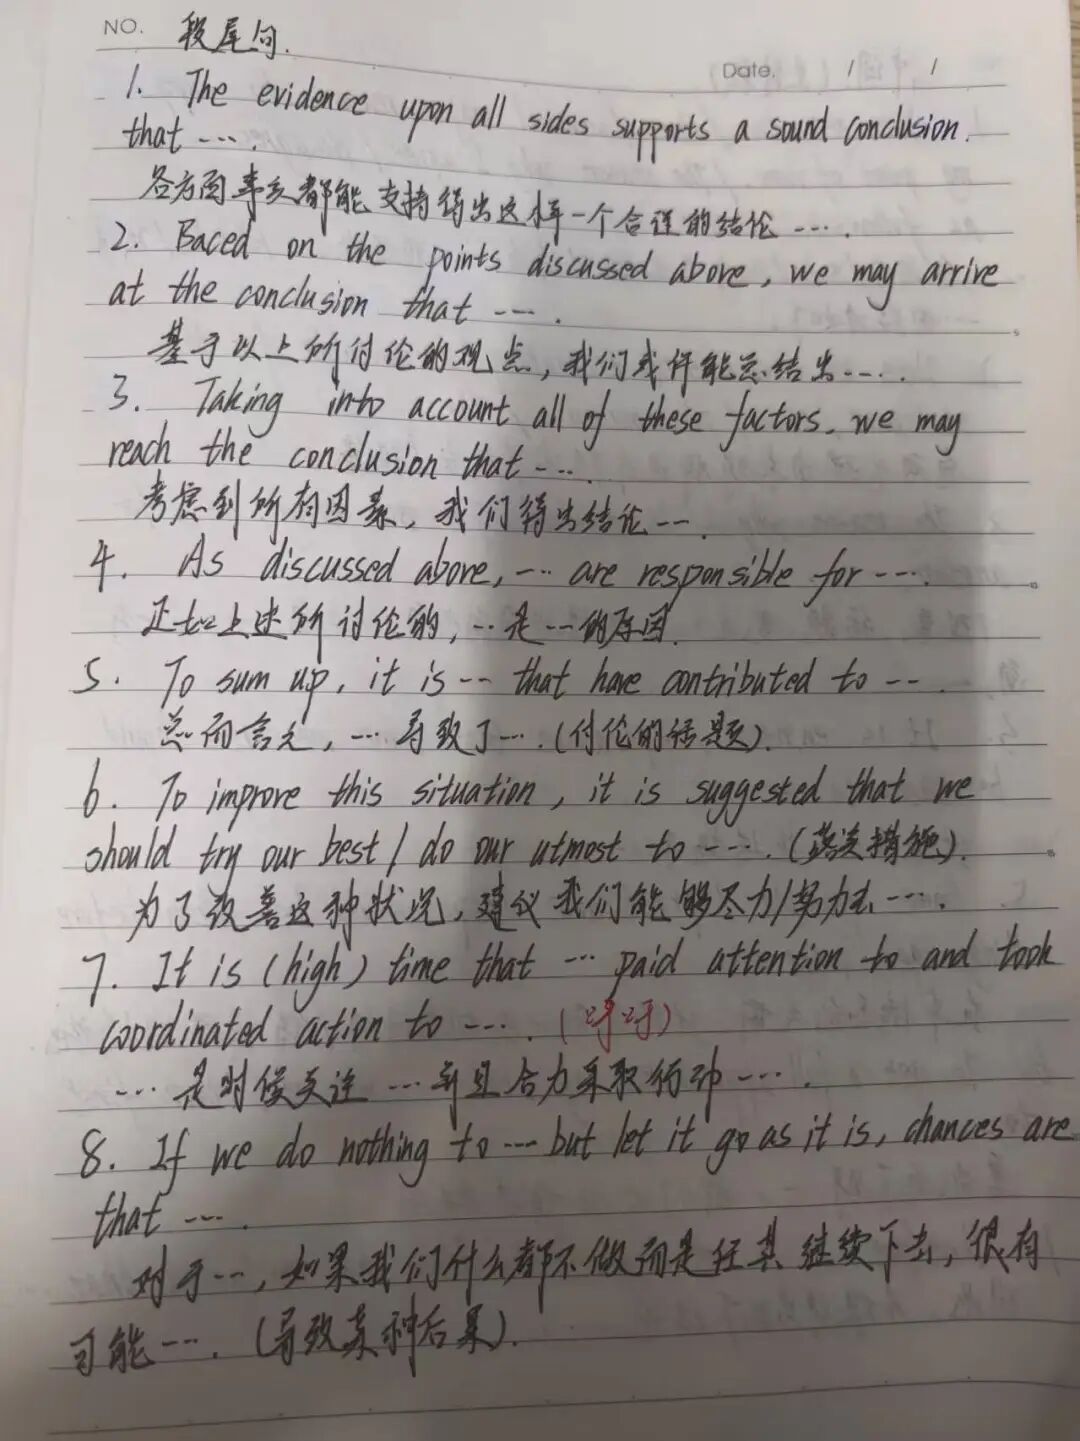 NO. 段尾句.
Date. / /
1. The evidence upon all sides supports a sound conclusion.
that ---.
各方面事实都能支持得出这样一个合理的结论 ---.
2. Baced on the points discussed above, we may arrive
at the conclusion that ---.
基于以上所讨论的观点,我们或许能总结出---.
3. Taking into account all of these factors, we may
reach the conclusion that ---.
考虑到所有因素,我们得出结论---.
4. As discussed above, --- are responsible for ---.
正如上述所讨论的,--是--的原因.
5. To sum up, it is -- that have contributed to ---.
总而言之,---导致了---.(讨论的话题).
6. To improve this situation, it is suggested that we
should try our best / do our utmost to ---. (措施).
为了改善这种状况,建议我们能够尽力/努力去---.
7. It is (high) time that --- paid attention to and took
coordinated action to ---. (呼吁)
---是时候关注---并且合力采取行动---.
8. If we do nothing to --- but let it go as it is, chances are
that ---.
对于--,如果我们什么都不做而是任其继续下去,很有
可能---.(导致某种后果).